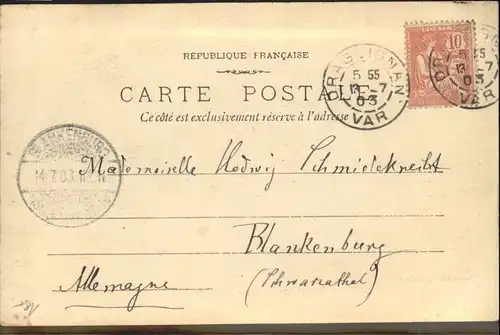 RÉPUBLIQUE FRANÇAISE
CARTE POSTALE
Ce côté est exclusivement réservé à l'adresse
10
DRAGUIGNAN
5 55
13 -7
03
VAR
DRAGUIGNAN
5 55
13 -7
03
VAR
BLANKENBURG
14.7.03.
Mademoiselle Hedwig Schmiedeknecht
Blankenburg
Allemagne
(Schwarzathal)